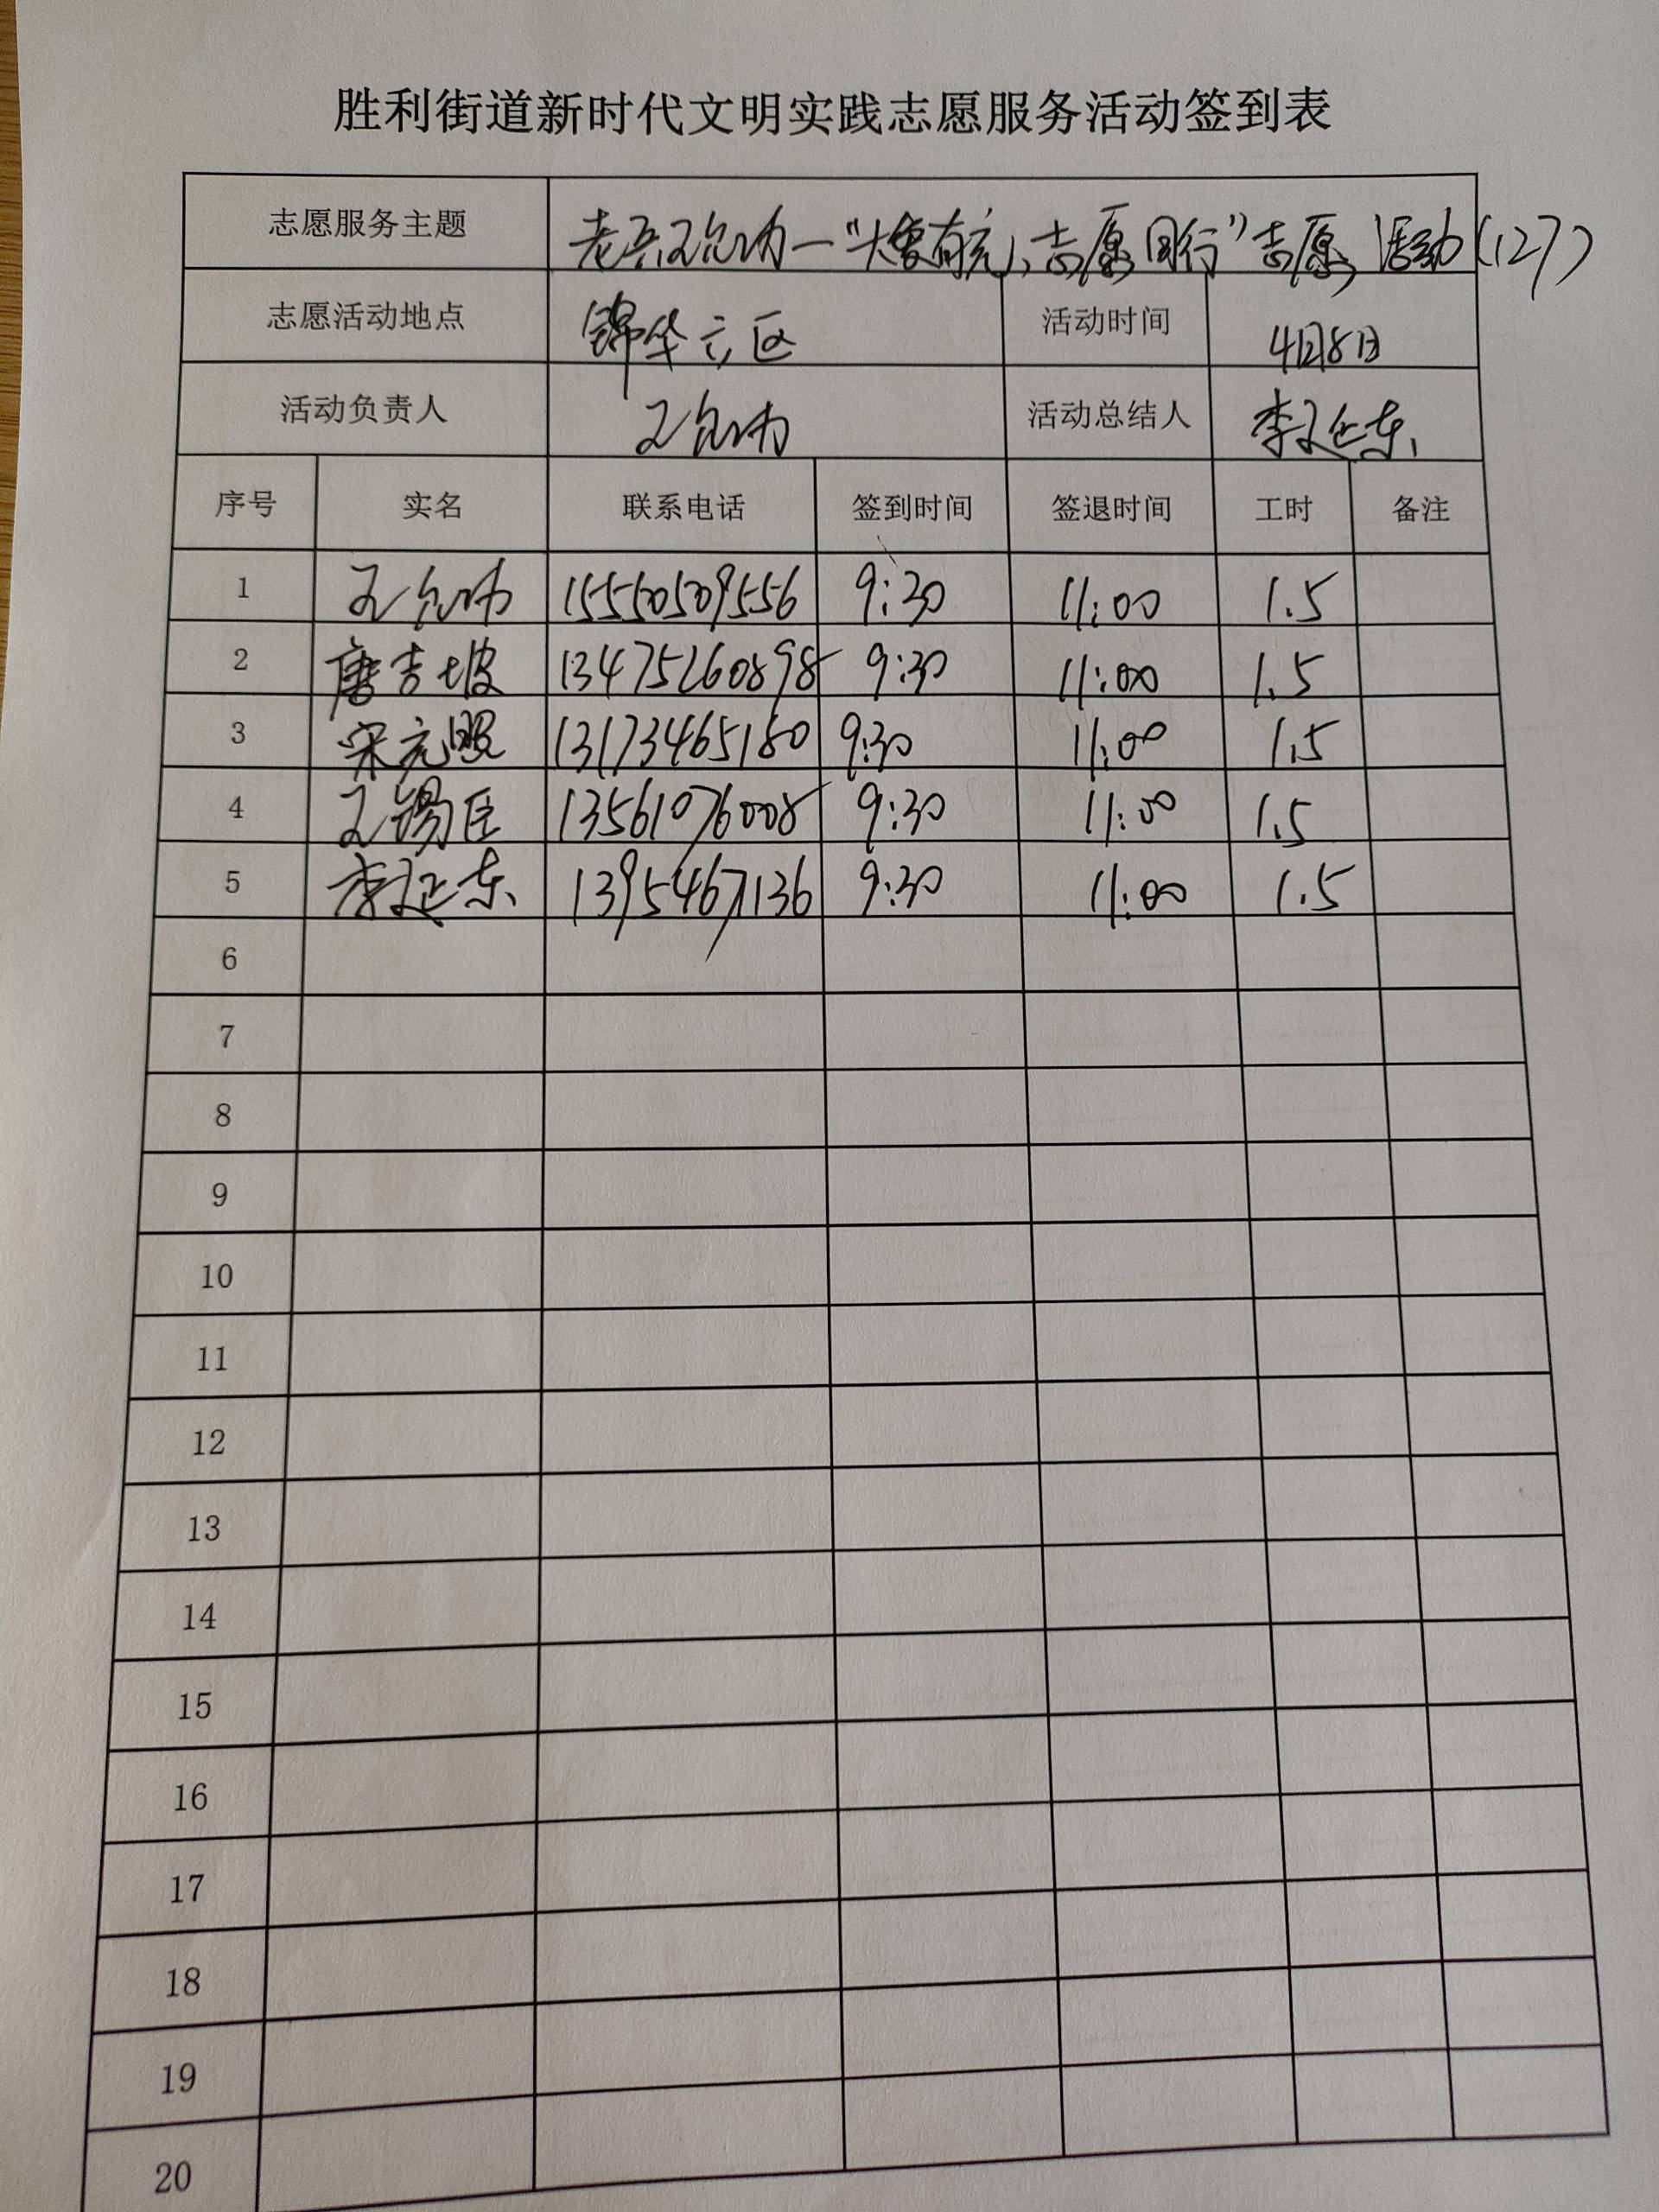 胜利街道新时代文明实践志愿服务活动签到表
志愿服务主题 老兵王允功—“ 志愿同行”志愿活动(127)
志愿活动地点 锦华六区 活动时间 4月8日
活动负责人 王允功 活动总结人 李延东
序号 实名 联系电话 签到时间 签退时间 工时 备注
1 王允功 15550509556 9:30 11:00 1.5
2 唐吉坡 13475260898 9:30 11:00 1.5
3 宋元照 13173465180 9:30 11:00 1.5
4 王锡臣 13561076008 9:30 11:00 1.5
5 李延东 13954671136 9:30 11:00 1.5
6
7
8
9
10
11
12
13
14
15
16
17
18
19
20